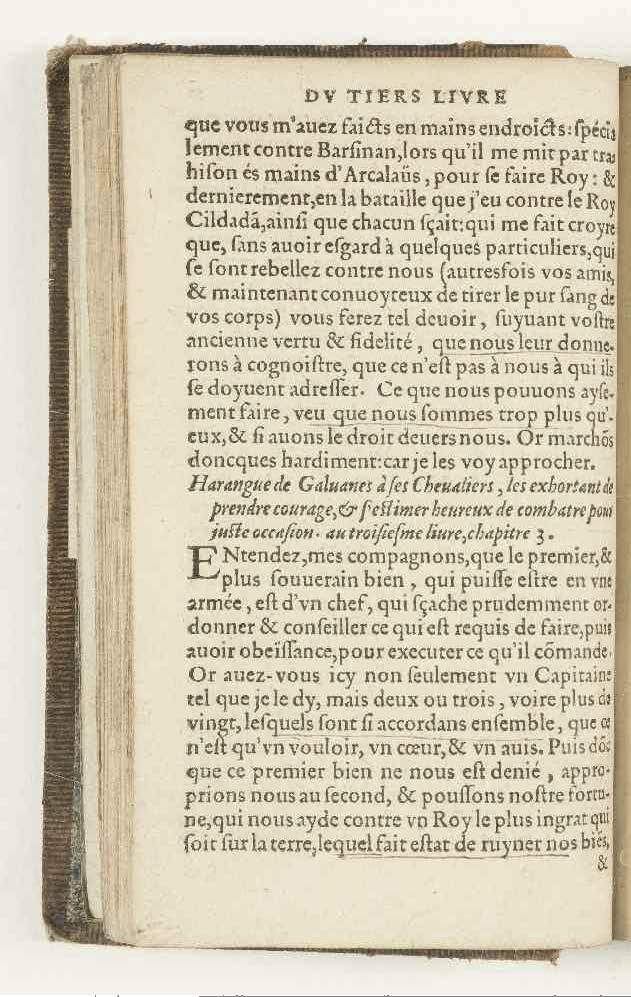 DV TIERS LIVRE
que vous m'auez faicts en mains endroicts: ſpécia
lement contre Barſinan, lors qu'il me mit par tra
hiſon és mains d'Arcalaüs, pour ſe faire Roy: &
dernierement, en la bataille que j'eu contre le Roy
Cildadã, ainſi que chacun ſçait: qui me fait croyre
que, ſans auoir eſgard à quelques particuliers, qui
ſe ſont rebellez contre nous (autresfois vos amis,
& maintenant conuoyteux de tirer le pur ſang de
vos corps) vous ferez tel deuoir, ſuyuant voſtre
ancienne vertu & fidelité, que nous leur donne-
rons à cognoiſtre, que ce n'eſt pas à nous à qui ils
ſe doyuent adreſſer. Ce que nous pouuons ayſe-
ment faire, veu que nous ſommes trop plus qu'-
eux, & ſi auons le droit deuers nous. Or marchõs
doncques hardiment: car je les voy approcher.
Harangue de Galuanes à ſes Cheualiers, les exhortant de
prendre courage, & s'eſtimer heureux de combatre pour
juſte occaſion. au troiſieſme liure, chapitre 3.
ENtendez, mes compagnons, que le premier, &
plus ſouuerain bien, qui puiſſe eſtre en vne
armée, eſt d'vn chef, qui ſçache prudemment or-
donner & conſeiller ce qui eſt requis de faire, puis
auoir obeïſſance, pour executer ce qu'il cõmande.
Or auez-vous icy non ſeulement vn Capitaine
tel que je le dy, mais deux ou trois, voire plus de
vingt, leſquels ſont ſi accordans enſemble, que ce
n'eſt qu'vn vouloir, vn cœur, & vn auis. Puis dõc
que ce premier bien ne nous eſt denié, appro-
prions nous au ſecond, & pouſſons noſtre fortu-
ne, qui nous ayde contre vn Roy le plus ingrat qui
ſoit ſur la terre, lequel fait eſtat de ruyner nos biés,
&